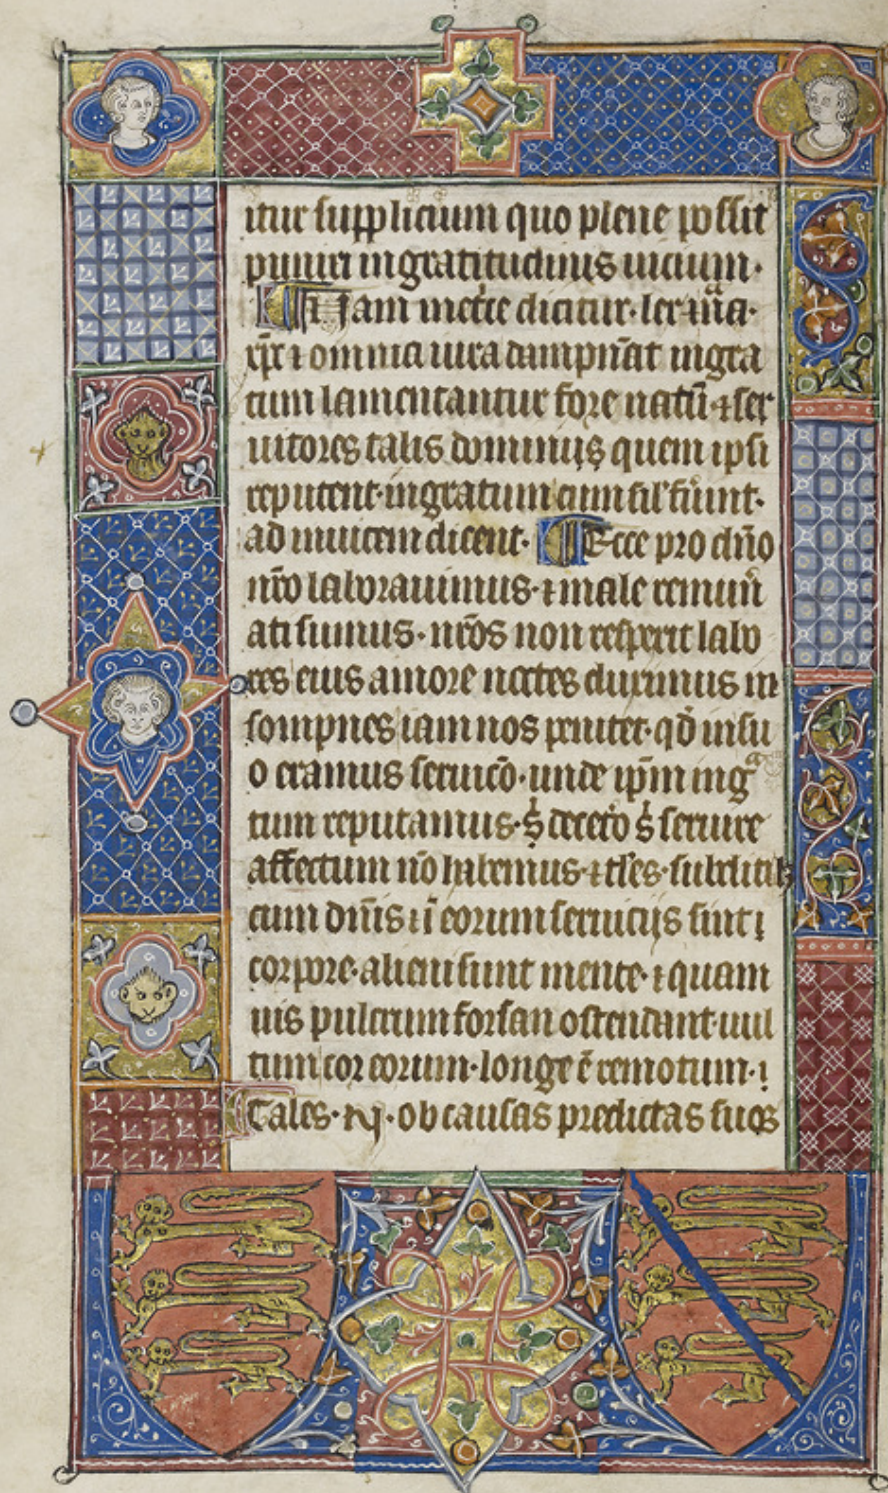 itur supplicium quo plene possit
puniri ingratitudinis uicium·
Nam incĩte dicitur·
et omnia iura dampñat ingra
tum lamentantur fore natũ ⁊ ser
uitores talis dominus quem ipsi
reputent·ingratum cum sil̃ fiũnt·
ad inuicem dicent· Ecce pro dño
nr̃o laborauimus·⁊ male remun̄
ati sumus· nr̃os non respexit labo
res eius amore noctes duximus in
sompnes iam nos penitet· qđ in su
o eramus seruicõ· unde ip̃m ingᵃ
tum reputamus· decet̃o seruire
affectum nõ habemus·
cum dñis ⁊ ĩ eorum seruicijs sint ĩ
corpore·alieni sunt mente·⁊ quam
uis pulcrum forsan ostendant·uul
tum cor eorum·longe ẽ remotum·ĩ
Tales·N̄·ob causas predictas suos